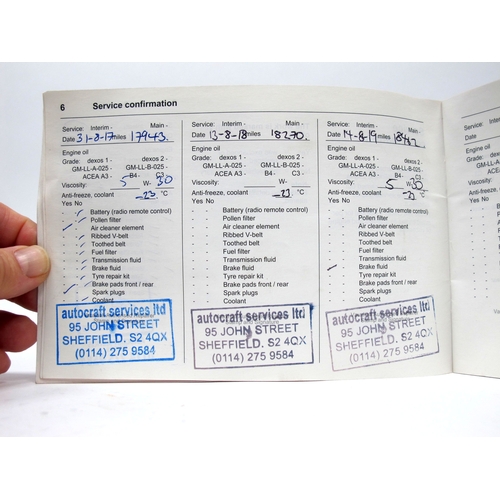 6 Service confirmation
Service: Interim - Main -
Date 31-8-17 miles 17943.
Engine oil
Grade: dexos 1 - dexos 2 -
GM-LL-A-025 - GM-LL-B-025 -
ACEA A3 - B4- C3 -
Viscosity: 5 W- 30
Anti-freeze, coolant -23 °C
Yes No
Battery (radio remote control)
Pollen filter
Air cleaner element
Ribbed V-belt
Toothed belt
Fuel filter
Transmission fluid
Brake fluid
Tyre repair kit
Brake pads front / rear
Spark plugs
Coolant
autocraft services ltd
95 JOHN STREET
SHEFFIELD. S2 4QX
(0114) 275 9584
Service: Interim - Main -
Date 13-8-18 miles 18270.
Engine oil
Grade: dexos 1 - dexos 2 -
GM-LL-A-025 - GM-LL-B-025 -
ACEA A3 - B4- C3 -
Viscosity: W-
Anti-freeze, coolant -23 °C
Yes No
Battery (radio remote control)
Pollen filter
Air cleaner element
Ribbed V-belt
Toothed belt
Fuel filter
Transmission fluid
Brake fluid
Tyre repair kit
Brake pads front / rear
Spark plugs
Coolant
autocraft services ltd
95 JOHN STREET
SHEFFIELD. S2 4QX
(0114) 275 9584
Service: Interim - Main -
Date 14-8-19 miles
Engine oil
Grade: dexos 1 - dexos 2 -
GM-LL-A-025 - GM-LL-B-025 -
ACEA A3 - B4- C3 -
Viscosity: 5 W- 30
Anti-freeze, coolant -23 °C
Yes No
Battery (radio remote control)
Pollen filter
Air cleaner element
Ribbed V-belt
Toothed belt
Fuel filter
Transmission fluid
Brake fluid
Tyre repair kit
Brake pads front / rear
Spark plugs
Coolant
autocraft services ltd
95 JOHN STREET
SHEFFIELD. S2 4QX
(0114) 275 9584
Service:
Date
Engine oil
Grade:
Viscosity
Anti-freeze
Yes No